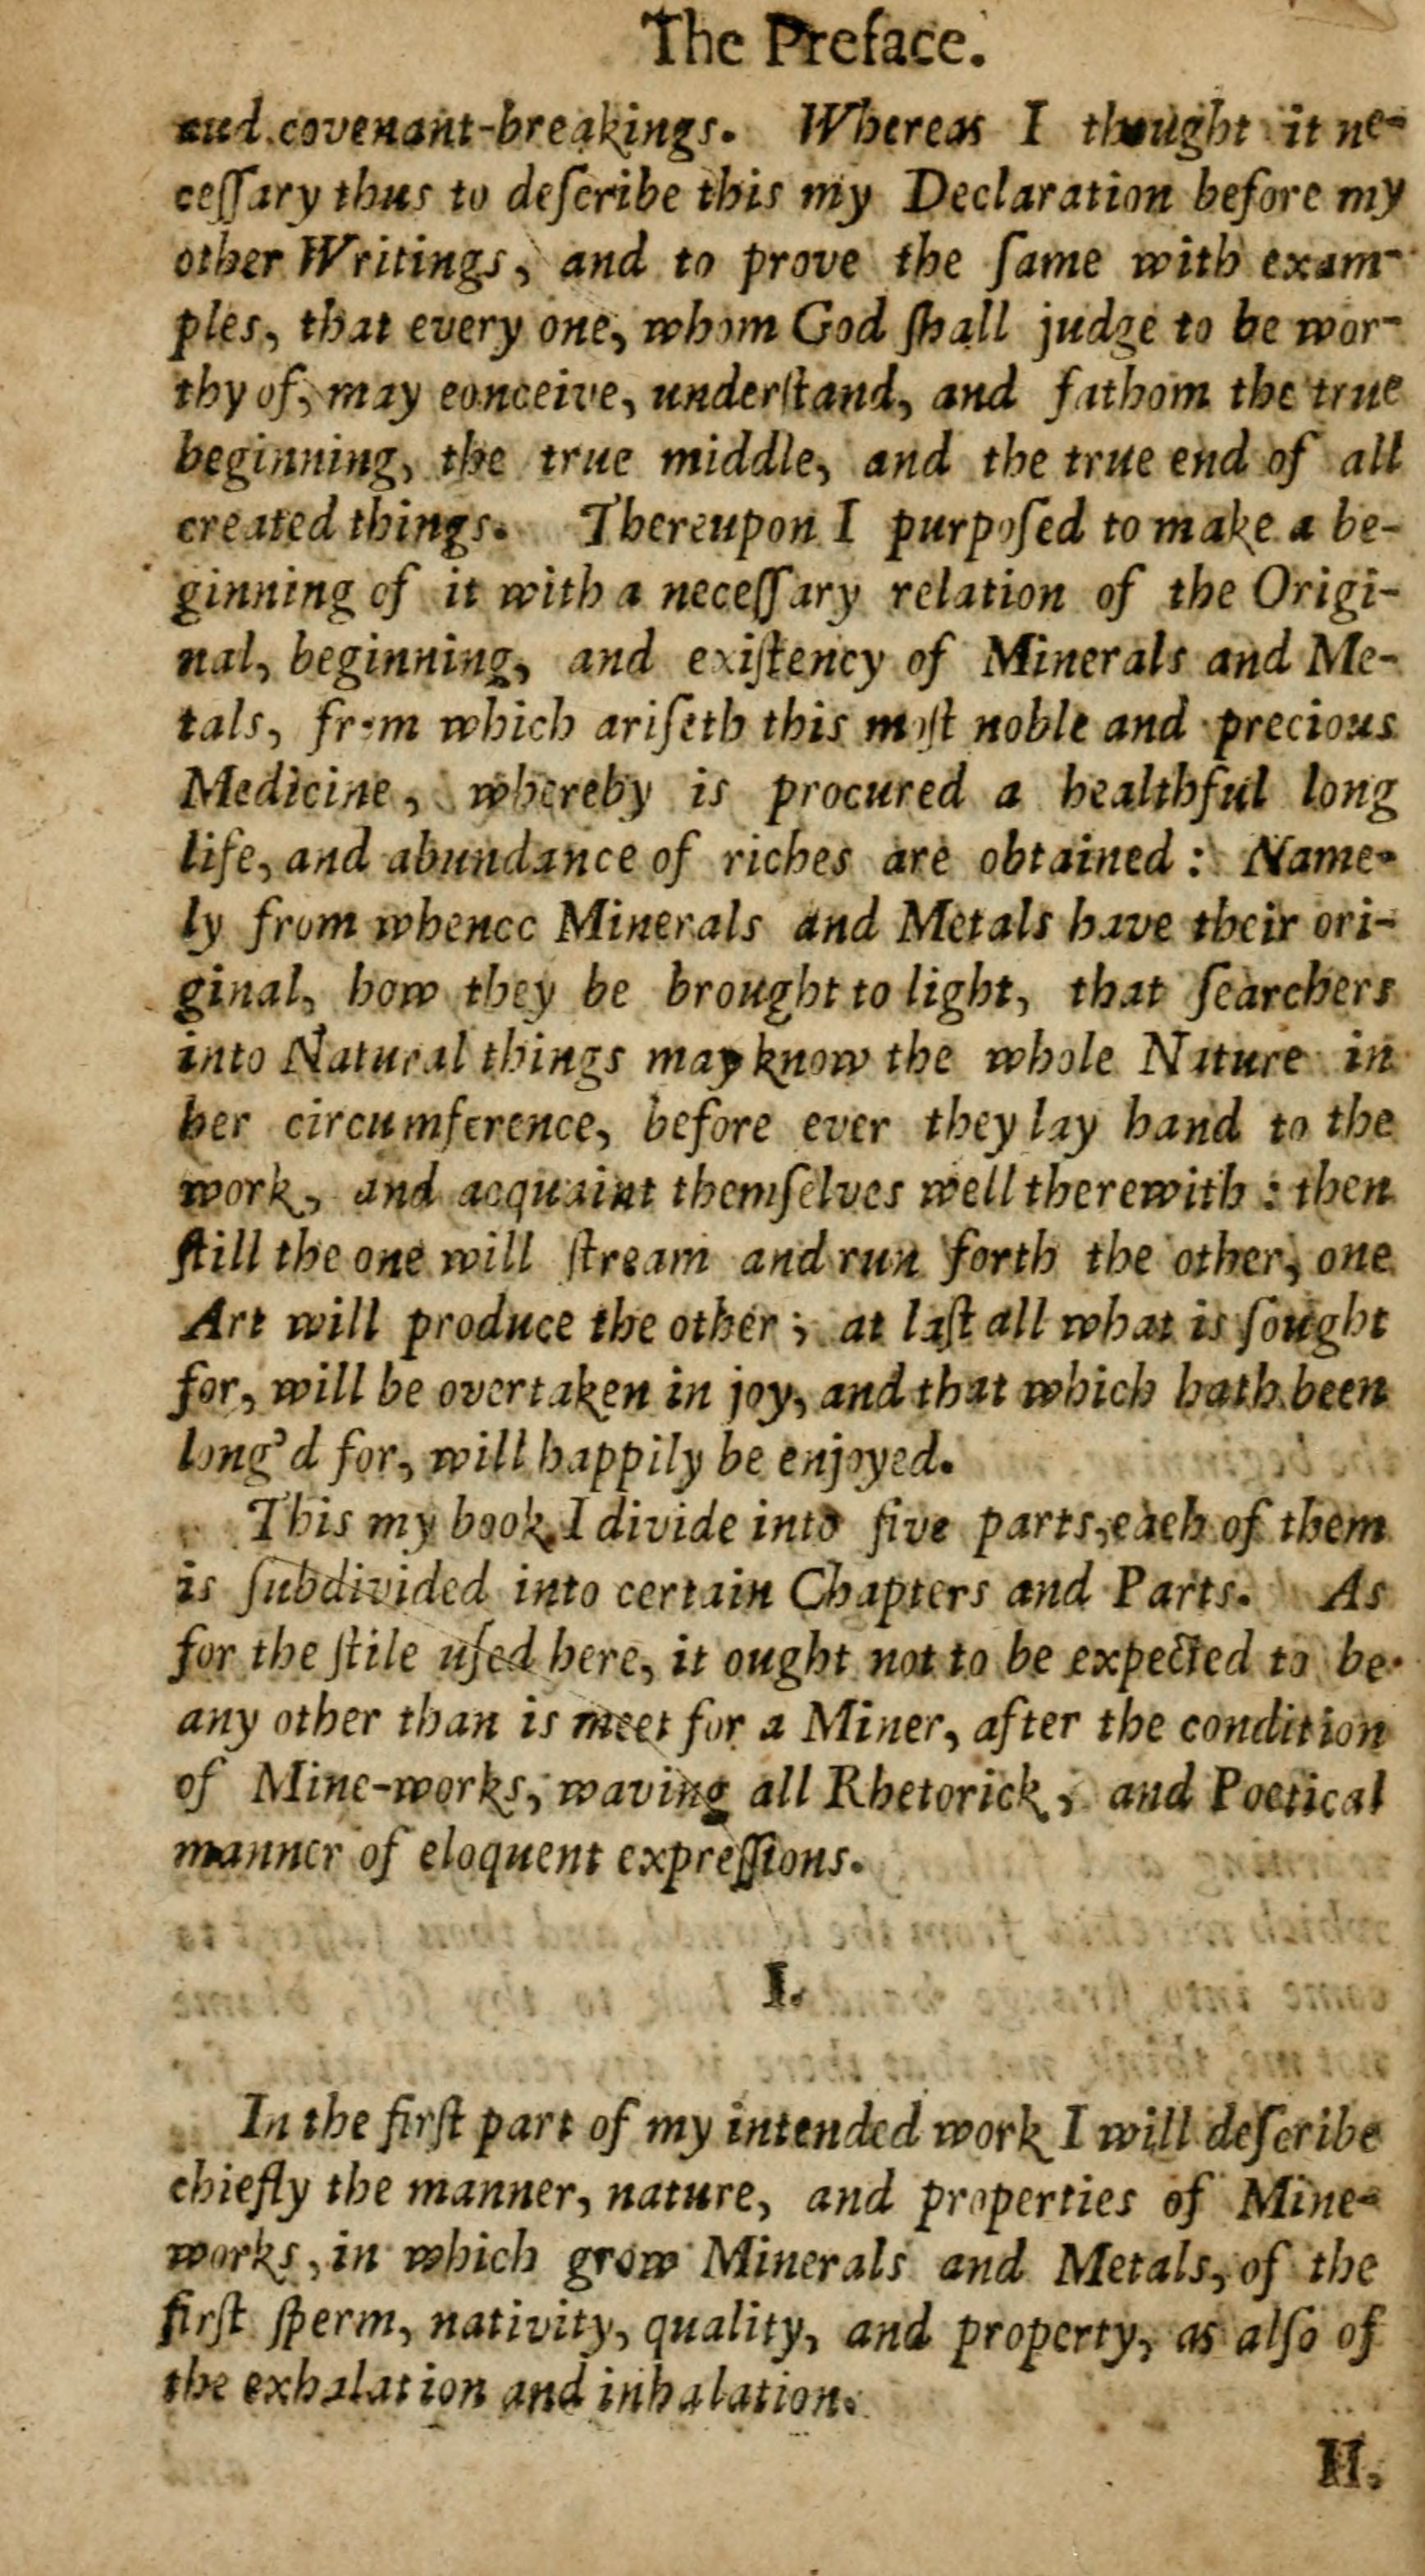 The Preface.
and covenant-breakings. Whereas I thought it ne-
ceſſary thus to deſcribe this my Declaration before my
other Writings, and to prove the ſame with exam-
ples, that every one, whom God ſhall judge to be wor-
thy of, may conceive, underſtand, and fathom the true
beginning, the true middle, and the true end of all
created things. Thereupon I purpoſed to make a be-
ginning of it with a neceſſary relation of the Origi-
nal, beginning, and exiſtency of Minerals and Me-
tals, from which ariſeth this moſt noble and precious
Medicine, whereby is procured a healthful long
life, and abundance of riches are obtained: Name-
ly from whence Minerals and Metals have their ori-
ginal, how they be brought to light, that ſearchers
into Natural things may know the whole Nature in
her circumference, before ever they lay hand to the
work, and acquaint themſelves well therewith: then
ſtill the one will ſtream and run forth the other, one
Art will produce the other; at laſt all what is ſought
for, will be overtaken in joy, and that which hath been
long'd for, will happily be enjoyed.
This my book I divide into five parts, each of them
is ſubdivided into certain Chapters and Parts. As
for the ſtile uſed here, it ought not to be expected to be
any other than is meet for a Miner, after the condition
of Mine-works, waving all Rhetorick, and Poetical
manner of eloquent expreſſions.
I.
In the firſt part of my intended work I will deſcribe
chiefly the manner, nature, and properties of Mine-
works, in which grow Minerals and Metals, of the
firſt ſperm, nativity, quality, and property, as alſo of
the exhalation and inhalation.
II.